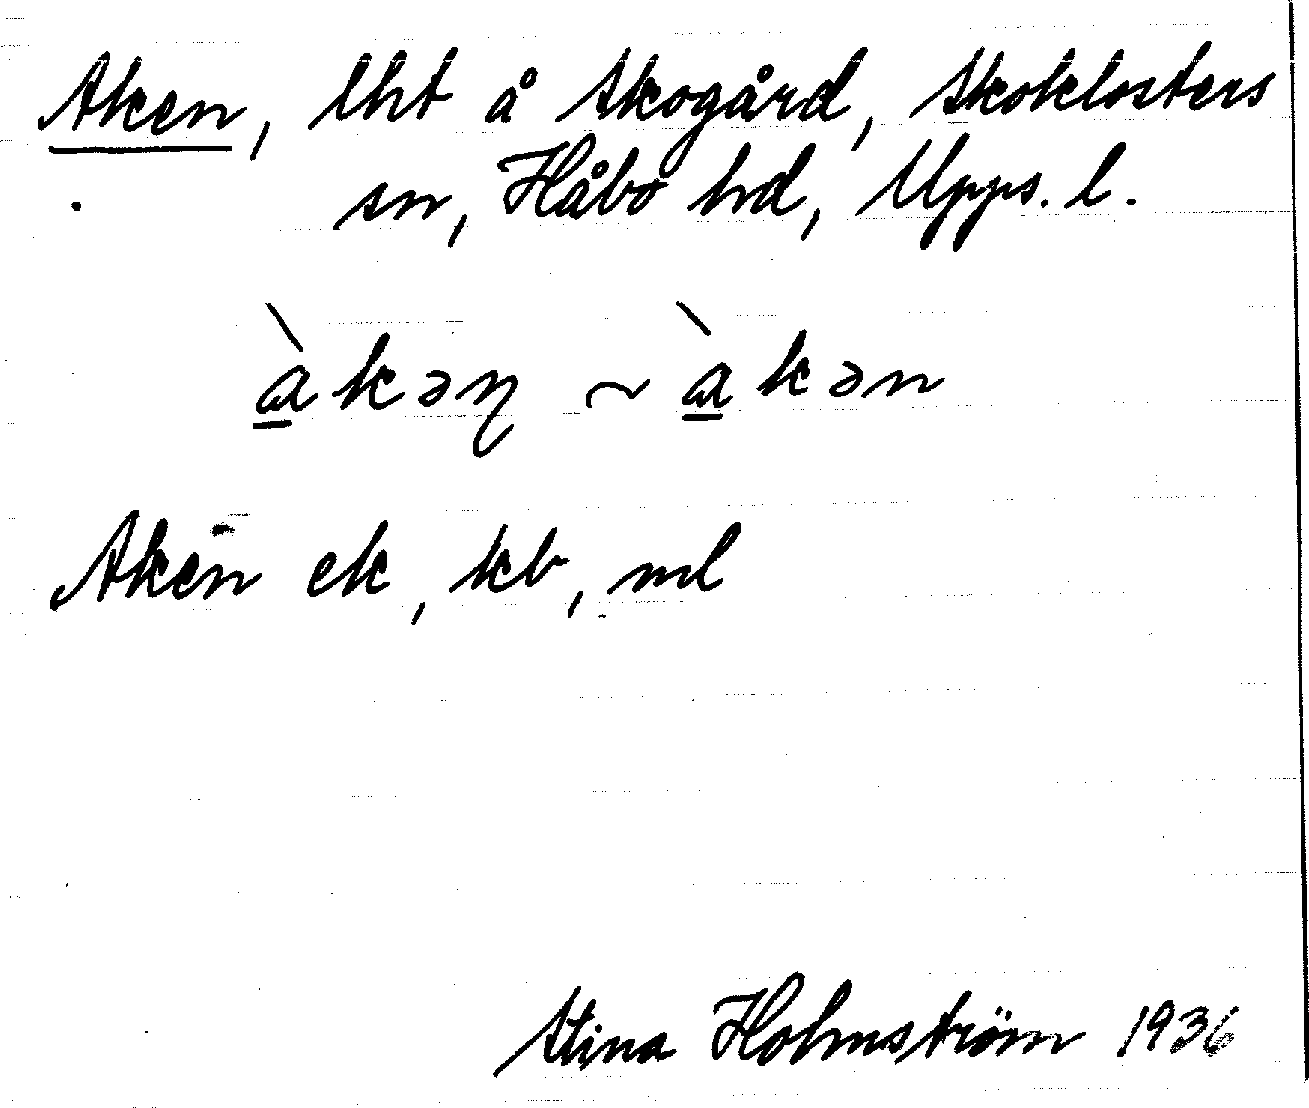 Aken, lht å Skogård, Skoklosters
sn, Håbo hd, Upps. l.
àkəŋ ~ àkən
Aken ek, kb, ml
Stina Holmström 1936